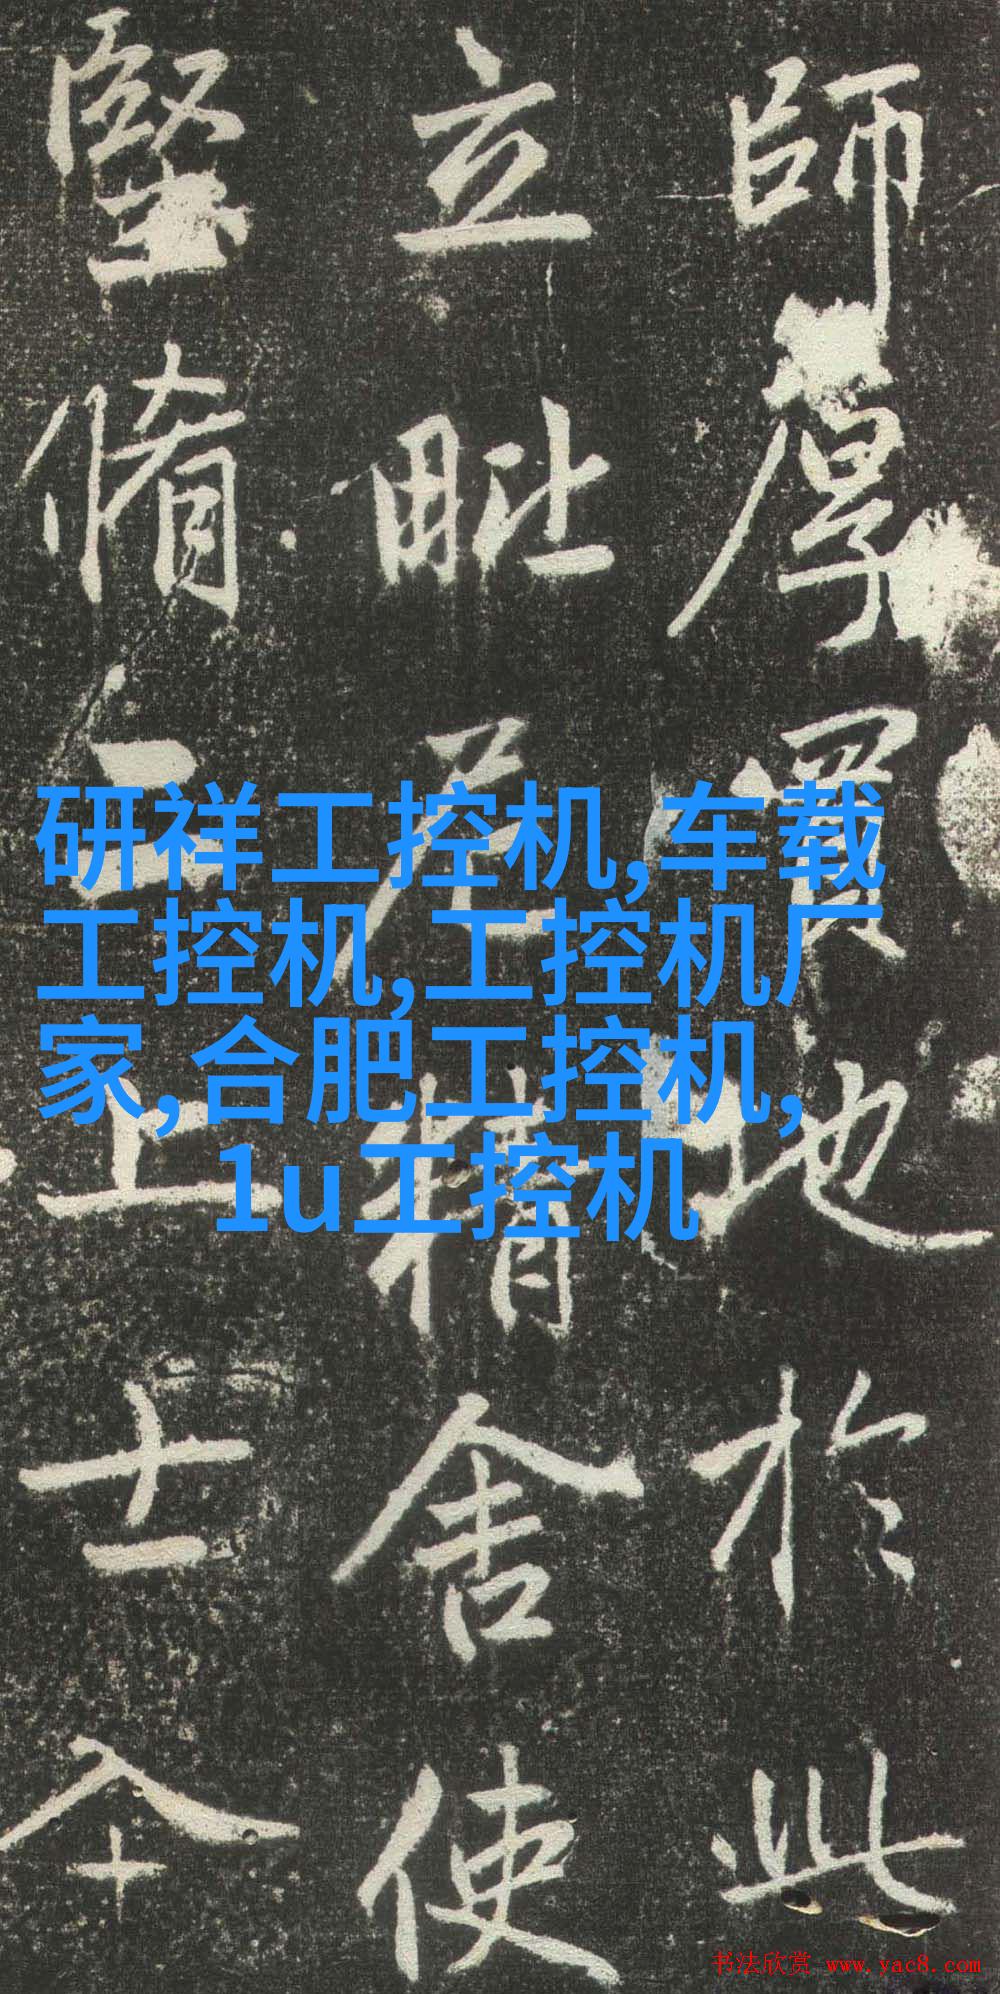 師厚買地於此
立毗尼精舍使
堅脩二上士
研祥工控机,车载
工控机,工控机厂
家,合肥工控机,
1u工控机
书法欣赏 www.yac8.com